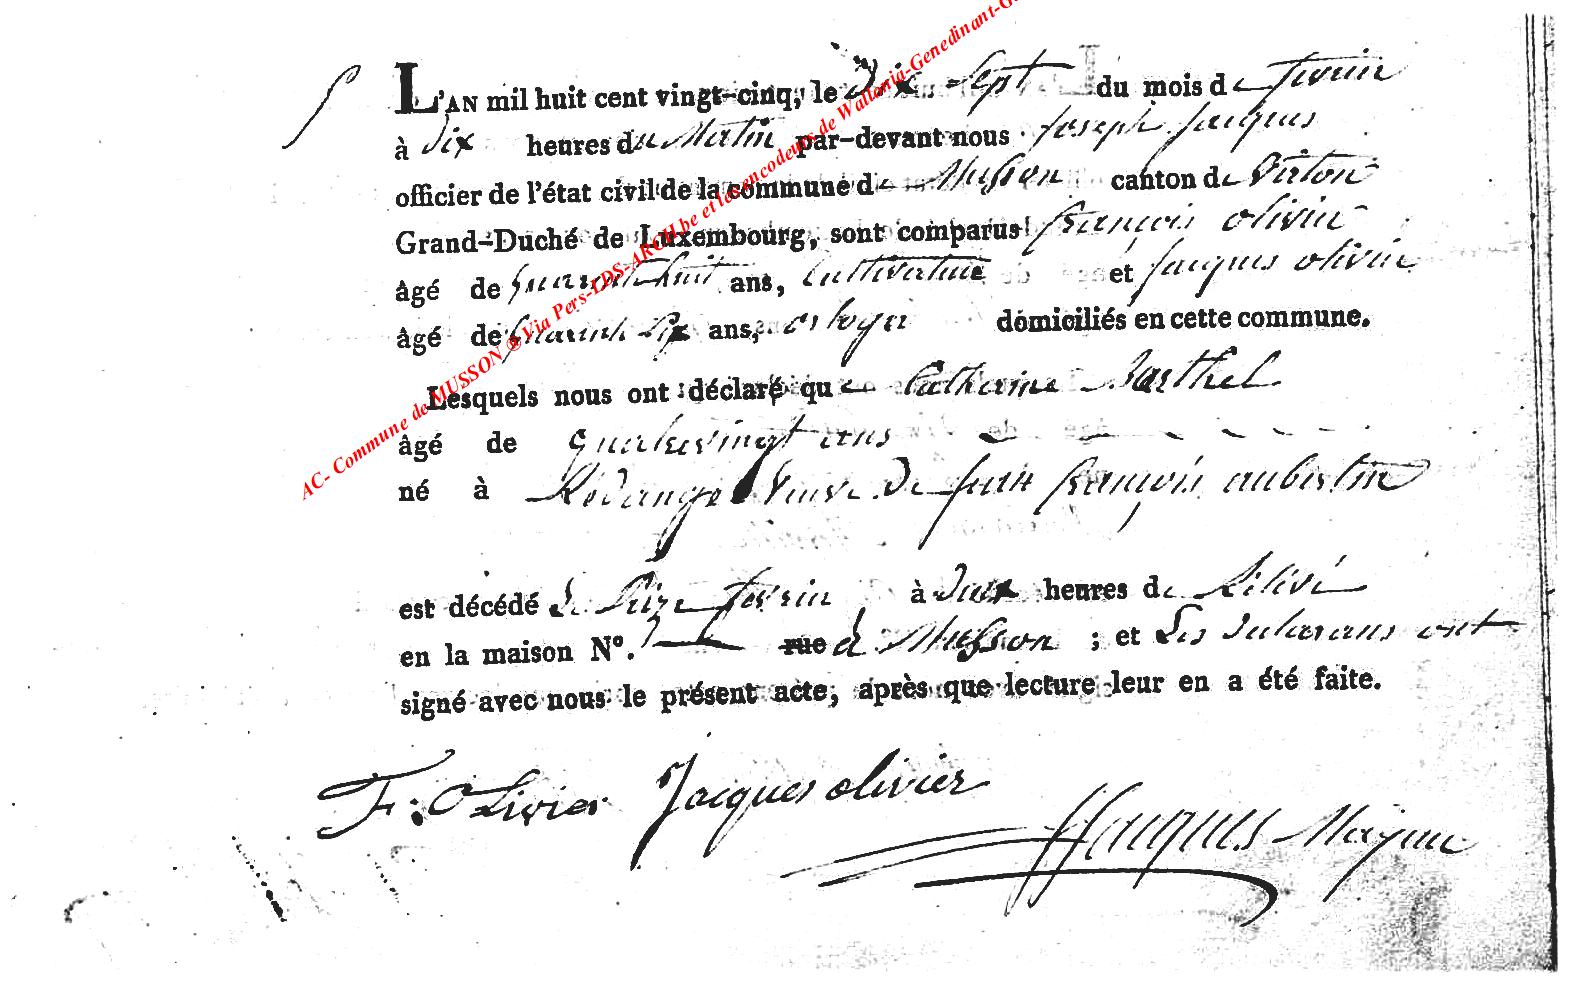 L'AN mil huit cent vingt-cinq, le dix Sept du mois de fevrier
à dix heures du Matin par-devant nous Joseph Jacques
officier de l'état civil de la commune de Musson canton de Virton
Grand-Duché de Luxembourg, sont comparus françois olivier
âgé de quarante huit ans, Cultivateur et Jacques olivier
âgé de quarante Six ans, orloger domiciliés en cette commune.
Lesquels nous ont déclaré que Catherine Barthel
âgé de quatrevingt ans
né à Rodange veuve de jean françois aubertin
est décédé le Seize fevrier à deux heures de Rélivé
en la maison N°. rue de Musson ; et Les declarans ont
signé avec nous le présent acte, après que lecture leur en a été faite.
F: Olivier Jacques olivier
JJacques Mayeur
AC- Commune de MUSSON ® Via Pers-LDS-ARCH.be et les encodeurs de Wallonia-Genedinant-G